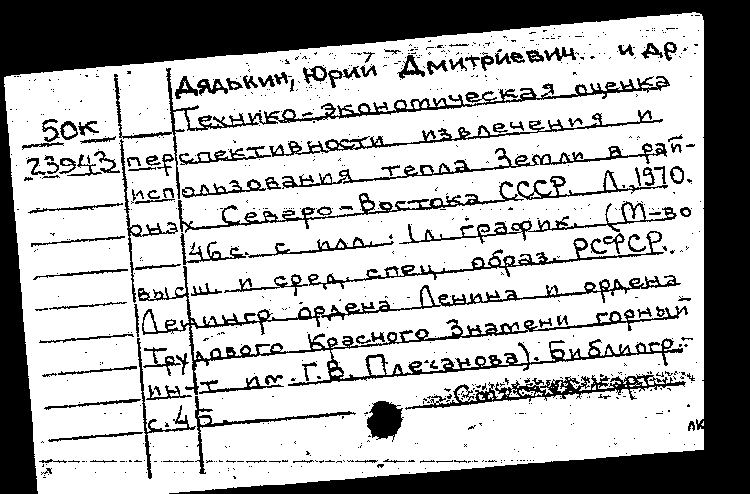 Дядькин, Юрий Дмитриевич и др.
50К Технико-экономическая оценка
23943 перспективности извлечения и
использования тепла Земли в рай-
онах Северо-Востока СССР. Л., 1970.
46 с. с илл.; 1 л. график. (М-во
высш. и сред. спец. образ. РСФСР.
Ленингр. ордена Ленина и ордена
Трудового Красного Знамени горный
ин-т им. Г.В. Плеханова). Библиогр.:
с. 45.
лк